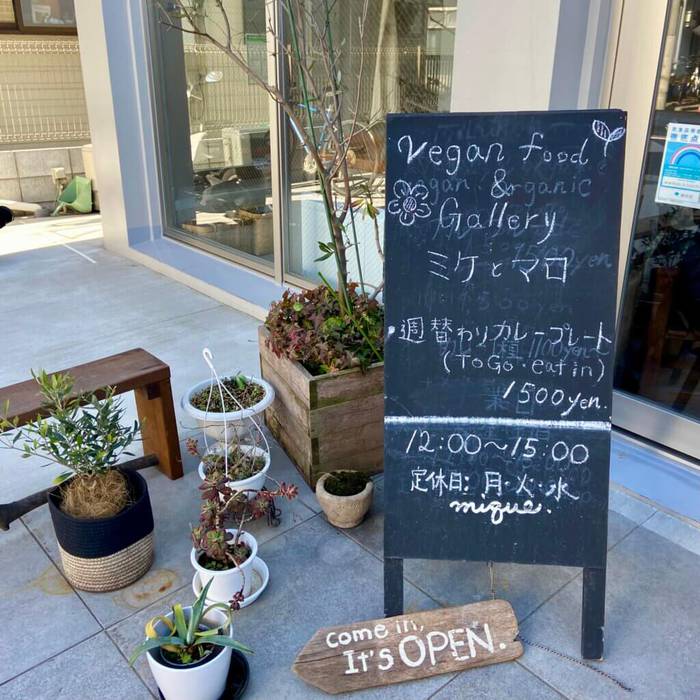 Vegan food
&
Gallery
ミケとマロ
週替わりカレープレート
(ToGo・eat in)
1500yen.
12:00~15:00
定休日: 月・火・水
mique.
come in,
It's OPEN.